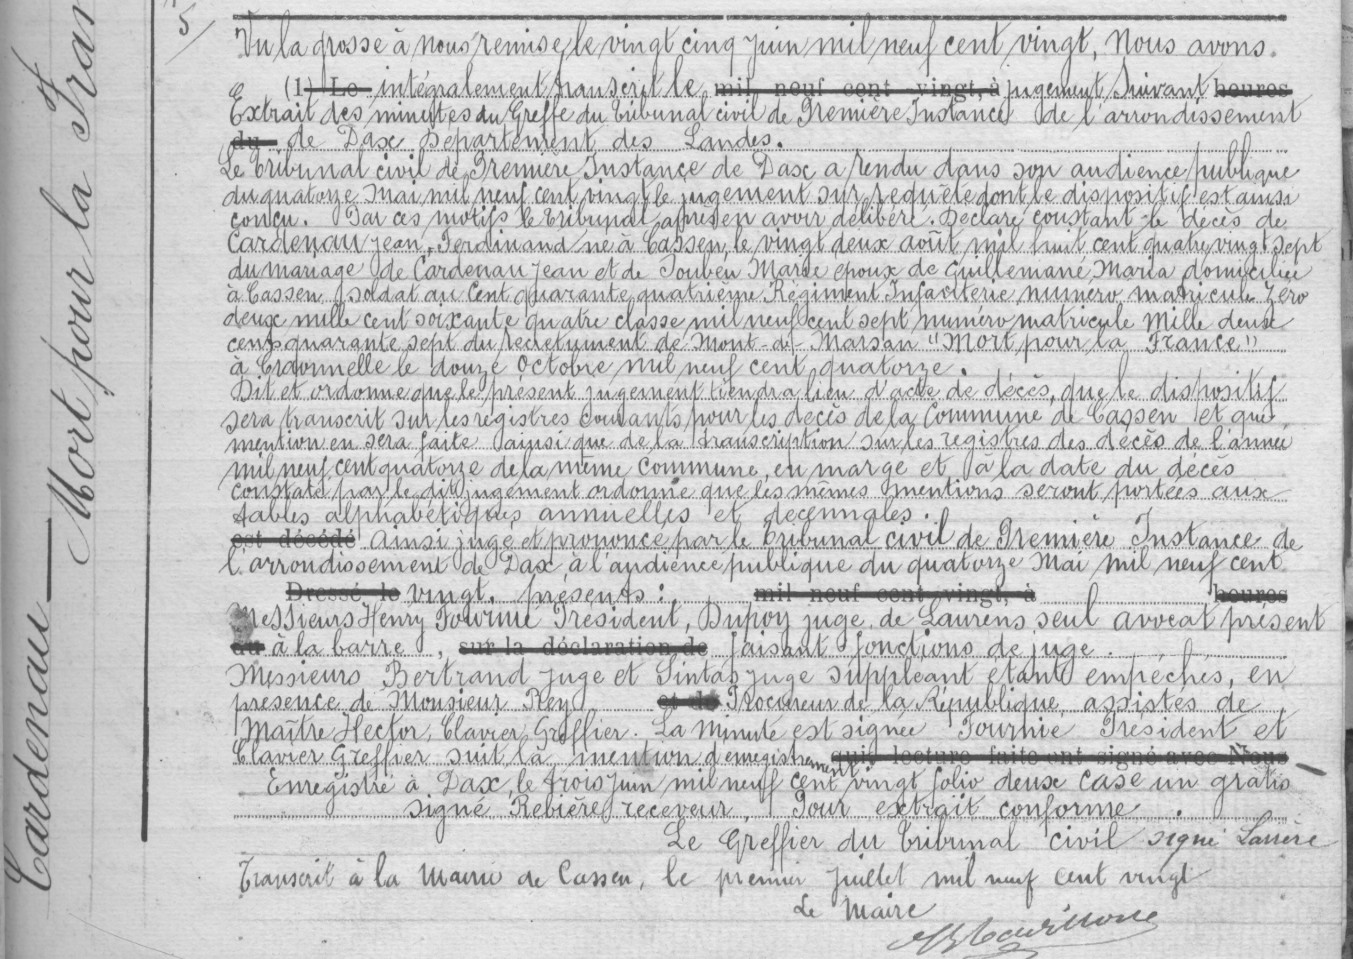 5
Cardenau — Mort pour la Fran
Vu la grosse à nous remise, le vingt cinq juin mil neuf cent vingt, Nous avons
(1) Le intégralement transcrit le mil neuf cent vingt, à jugement suivant heures
Extrait des minutes du Greffe du Tribunal civil de Première Instance de l'arrondissement
du de Dax Département des Landes.
Le Tribunal civil de Première Instance de Dax a rendu dans son audience publique
du quatorze Mai mil neuf cent vingt le jugement sur requête dont le dispositif est ainsi
conçu. Par ces motifs le Tribunal après en avoir délibéré. Déclare constant le décès de
Cardenau Jean, Ferdinand né à Cassen, le vingt deux août mil huit cent quatre vingt sept
du mariage de Cardenau Jean et de Touben Marie époux de Guillemané Maria domiciliée
à Cassen, soldat au Cent quarante quatrième Régiment Infanterie numéro matricule Zéro
deux mille cent soixante quatre classe mil neuf cent sept numéro matricule Mille deux
cent quarante sept du recrutement de Mont-de-Marsan "Mort pour la France"
à Craonnelle le douze Octobre mil neuf cent quatorze.
Dit et ordonne que le présent jugement tiendra lieu d'acte de décès, que le dispositif
sera transcrit sur les registres courants pour les décès de la Commune de Cassen et que
mention en sera faite ainsi que de la transcription sur les registres des décès de l'année
mil neuf cent quatorze de la même commune, en marge et à la date du décès
constaté par le dit jugement ordonne que les mêmes mentions seront portées aux
tables alphabétiques annuelles et décennales.
est décédé Ainsi jugé et prononcé par le Tribunal civil de Première Instance de
l'arrondissement de Dax, à l'audience publique du quatorze Mai mil neuf cent
Dressé le vingt, présents : mil neuf cent vingt, à heures
Messieurs Henry Fournié Président, Dupoy juge, de Laurens seul avocat présent
au à la barre, sur la déclaration de faisant fonctions de juge.
Messieurs Bertrand juge et Sintas juge suppléant étant empêchés, en
présence de Monsieur Rey et de Procureur de la République, assistés de
Maître Hector Clavier Greffier. La Minute est signée Fournié Président et
Clavier Greffier suit la mention d'enregistrement qui, lecture faite ont signé avec Nous
Enregistré à Dax, le trois juin mil neuf cent vingt folio deux case un gratis
signé Rebière receveur, Pour extrait conforme
Le Greffier du Tribunal civil signé Larrère
Transcrit à la Mairie de Cassen, le premier juillet mil neuf cent vingt
Le Maire